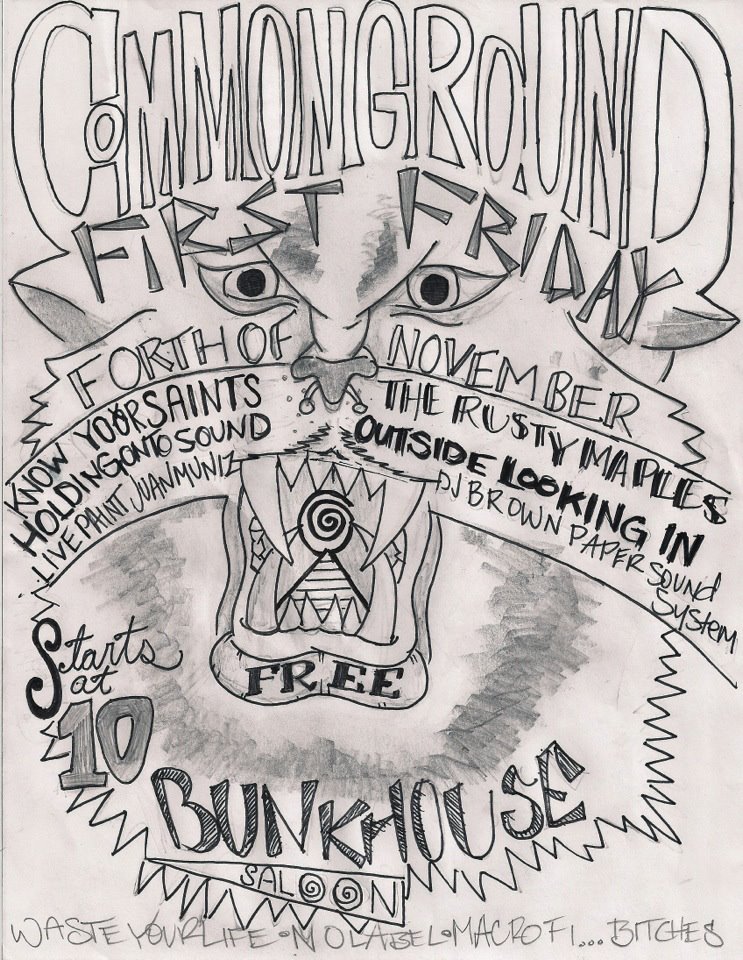 COMMONGROUND
FIRST FRIDAY
FORTH OF NOVEMBER
KNOW YOUR SAINTS
HOLDING ONTO SOUND
LIVE PAINT JUAN MUNIZ
THE RUSTY MAPLES
OUTSIDE LOOKING IN
DJ BROWN PAPER SOUND SYSTEM
FREE
Starts
at
10
BUNKHOUSE
SALOON
WASTEYOURLIFE • NOLABEL • MACROFI... BITCHES